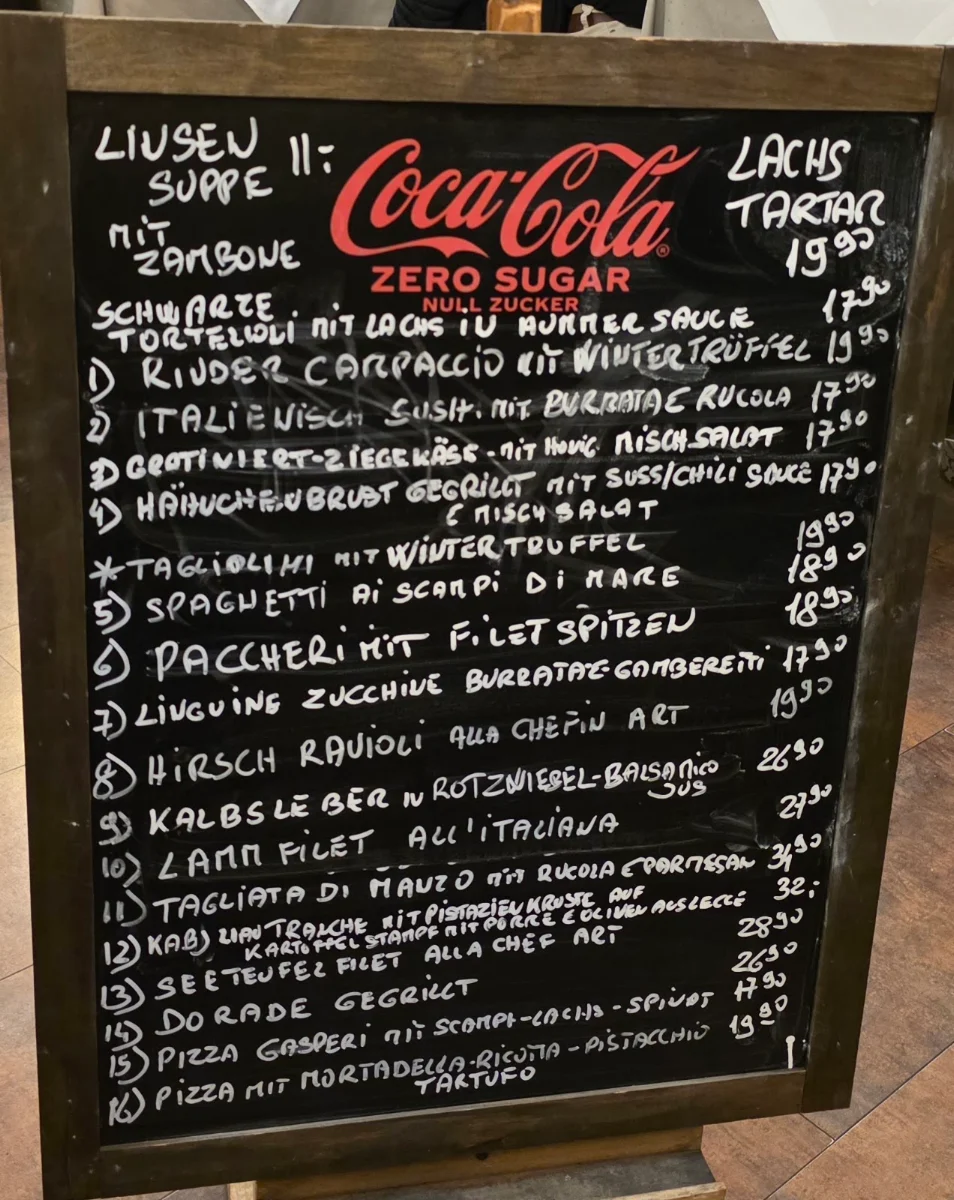 LINSEN
SUPPE 11:-
MIT
ZAMBONE
Coca-Cola®
ZERO SUGAR
NULL ZUCKER
LACHS
TARTAR
19 90
SCHWARZE
TORTELLOLI MIT LACHS IN HUMMER SAUCE 17 90
1) RINDER CARPACCIO MIT WINTER TRÜFFEL 19 90
2) ITALIENISCH SUSHI MIT BURRATA E RUCOLA 17 90
3) GRATINIERT-ZIEGEKÄSE-MIT HONIG MISCH SALAT 17 90
4) HÄHNCHENBRUST GEGRILLT MIT SUSS/CHILI SAUCE 17 90
E MISCH SALAT
* TAGLIOLINI MIT WINTER TRUFFEL 19 90
5) SPAGHETTI AI SCAMPI DI MARE 18 90
6) PACCHERI MIT FILET SPITZEN 18 90
7) LINGUINE ZUCCHINE BURRATA E-GAMBERETTI 17 90
8) HIRSCH RAVIOLI ALLA CHEFIN ART 19 90
9) KALBSLEBER IN ROTZWIEBEL-BALSAMICO 26 90
JUS
10) LAMM FILET ALL'ITALIANA 27 90
11) TAGLIATA DI MANZO MIT RUCOLA E PARMESAN 34 90
12) KABJLIAU TRANCHE MIT PISTAZIEN KRUSTE AUF 32:-
KARTOFFEL STAMPF MIT PORRE E OLIVEN
13) SEETEUFEL FILET ALLA CHEF ART 28 90
14) DORADE GEGRILLT 26 90
15) PIZZA GASPERI MIT SCAMPI-LACHS-SPINAT 17 90
16) PIZZA MIT MORTADELLA-RICOTTA-PISTACCHIO 19 90
TARTUFO